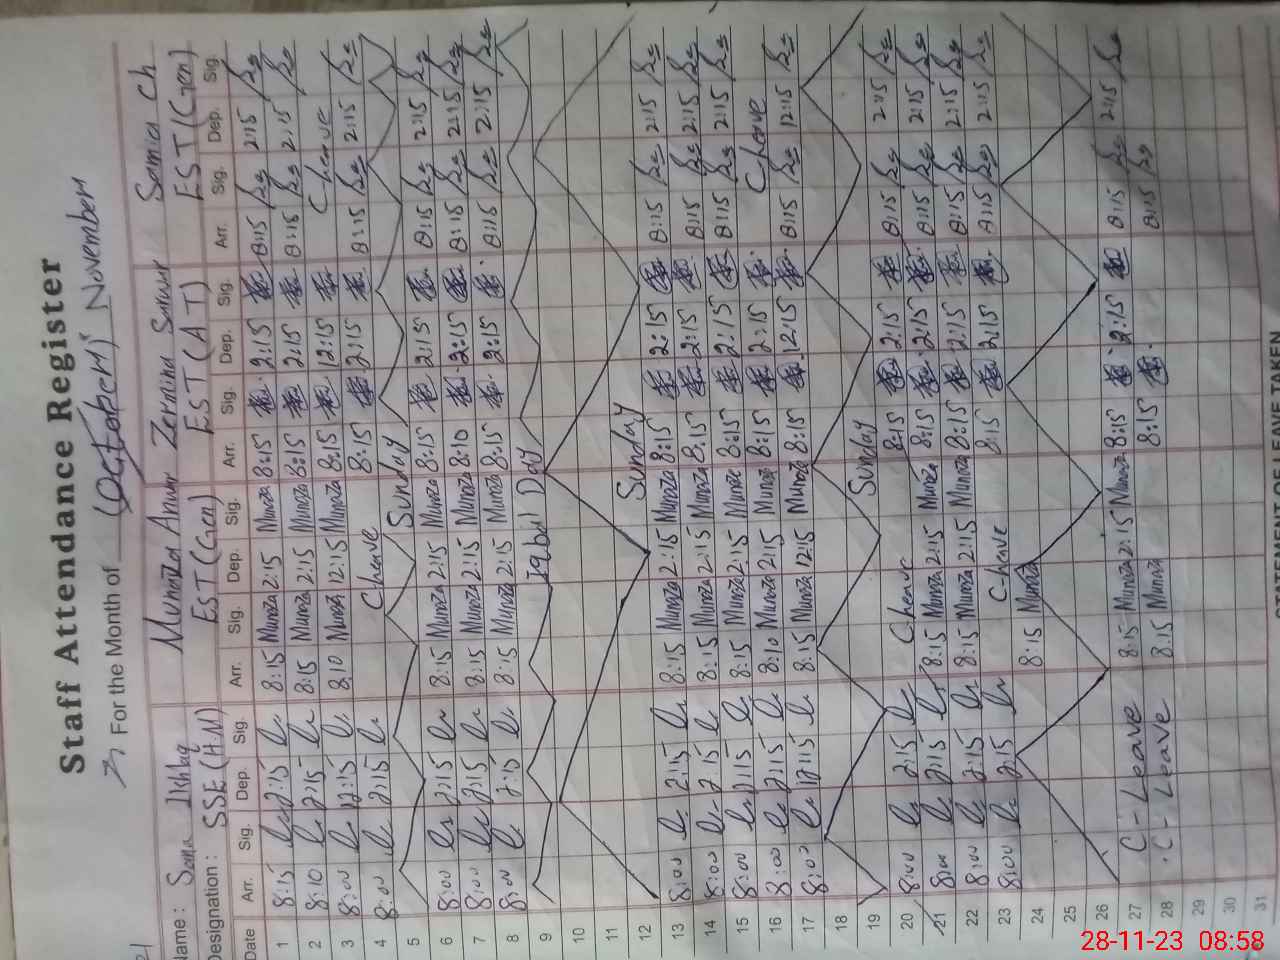 Staff Attendance Register
For the Month of (October) November
Name: Sama Ishfaq Munaza Anwar Zermina Sarwar Samia Ch
Designation: SSE (H.M) EST (Gen) EST (A T) EST (Gen)
Date Arr. Sig. Dep. Sig. Arr. Sig. Dep. Sig. Arr. Sig. Dep. Sig. Arr. Sig. Dep. Sig.
1 8:15 2:15 8:15 Munaza 2:15 Munaza 8:15 2:15 8:15 2:15
2 8:10 2:15 8:15 Munaza 2:15 Munaza 8:15 2:15 8:15 2:15
3 8:00 12:15 8:10 Munaza 12:15 Munaza 8:15 12:15 C heave
4 8:00 2:15 C heave 8:15 2:15 8:15 2:15
5 Sunday
6 8:00 2:15 8:15 Munaza 2:15 Munaza 8:15 2:15 8:15 2:15
7 8:00 2:15 8:15 Munaza 2:15 Munaza 8:10 2:15 8:15 2:15
8 8:00 2:15 8:15 Munaza 2:15 Munaza 8:15 2:15 8:15 2:15
9 Iqbal Day
10
11
12 Sunday
13 8:00 2:15 8:15 Munaza 2:15 Munaza 8:15 2:15 8:15 2:15
14 8:00 2:15 8:15 Munaza 2:15 Munaza 8:15 2:15 8:15 2:15
15 8:00 2:15 8:15 Munaza 2:15 Munaza 8:15 2:15 8:15 2:15
16 8:00 2:15 8:10 Munaza 2:15 Munaza 8:15 2:15 C heave
17 8:00 12:15 8:15 Munaza 12:15 Munaza 8:15 12:15 8:15 12:15
18
19 Sunday
20 8:00 2:15 C heave 8:15 2:15 8:15 2:15
21 8:00 2:15 8:15 Munaza 2:15 Munaza 8:15 2:15 8:15 2:15
22 8:00 2:15 8:15 Munaza 2:15 Munaza 8:15 2:15 8:15 2:15
23 8:00 2:15 C-heave 8:15 2:15 8:15 2:15
24 8:15 Munaza
25
26
27 C-Leave 8:15 Munaza 2:15 Munaza 8:15 2:15 8:15 2:15
28 C-Leave 8:15 Munaza 8:15 8:15
29
30
31
STATEMENT OF LEAVE TAKEN
28-11-23 08:58